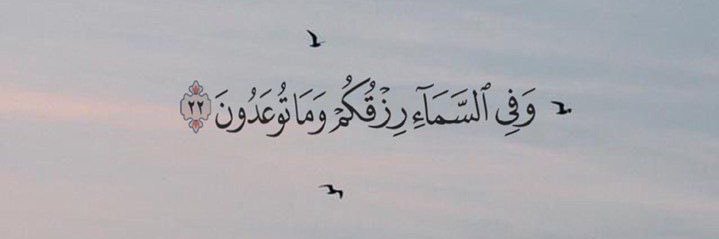 وَفِي ٱلسَّمَآءِ رِزۡقُكُمۡ وَمَا تُوعَدُونَ ٢٢